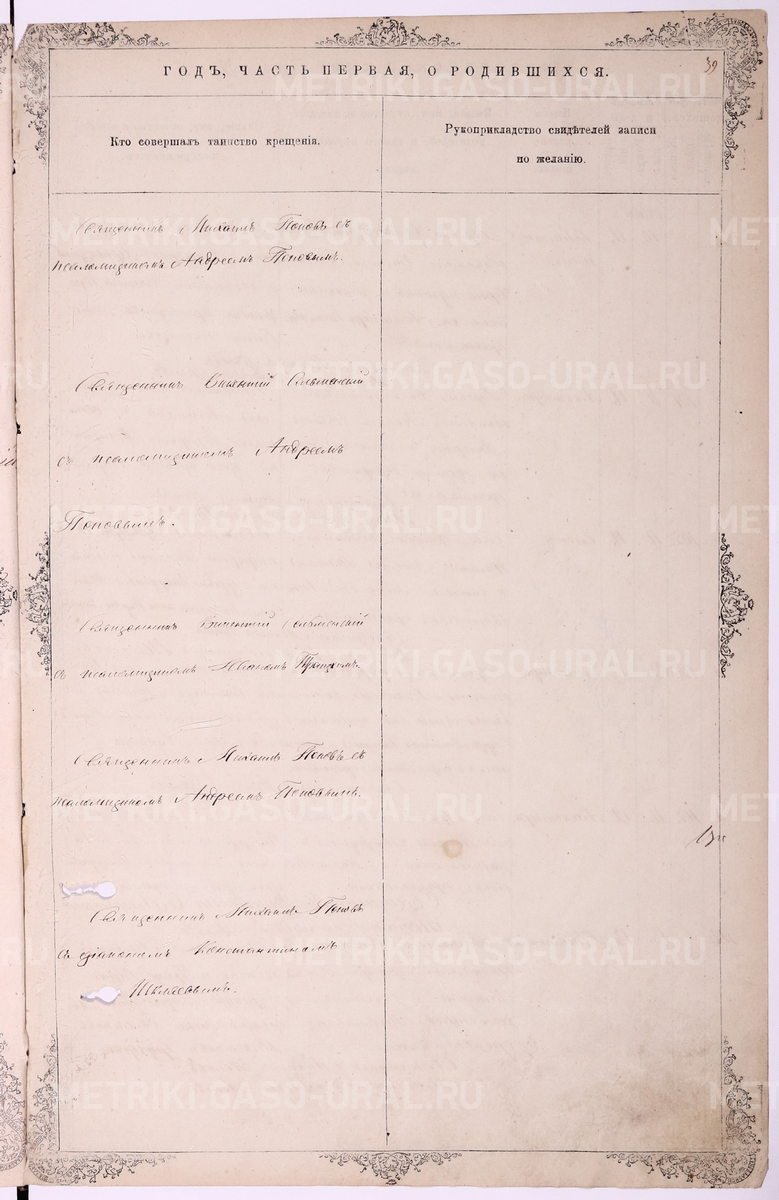 ГОДЪ, ЧАСТЬ ПЕРВАЯ, О РОДИВШИХСЯ.
39
Кто совершалъ таинство крещенія.
Рукоприкладство свидѣтелей записи
по желанію.
Священникъ Михаилъ Поповъ съ
псаломщикомъ Андреемъ Поповымъ.
Священникъ
съ псаломщикомъ Андреемъ
Поповымъ.
Священникъ
съ псаломщикомъ Иваномъ
Священникъ Михаилъ Поповъ съ
псаломщикомъ Андреемъ Поповымъ.
Священникъ Михаилъ Поповъ
съ діакономъ Константиномъ
METRIKI.GASO-URAL.RU